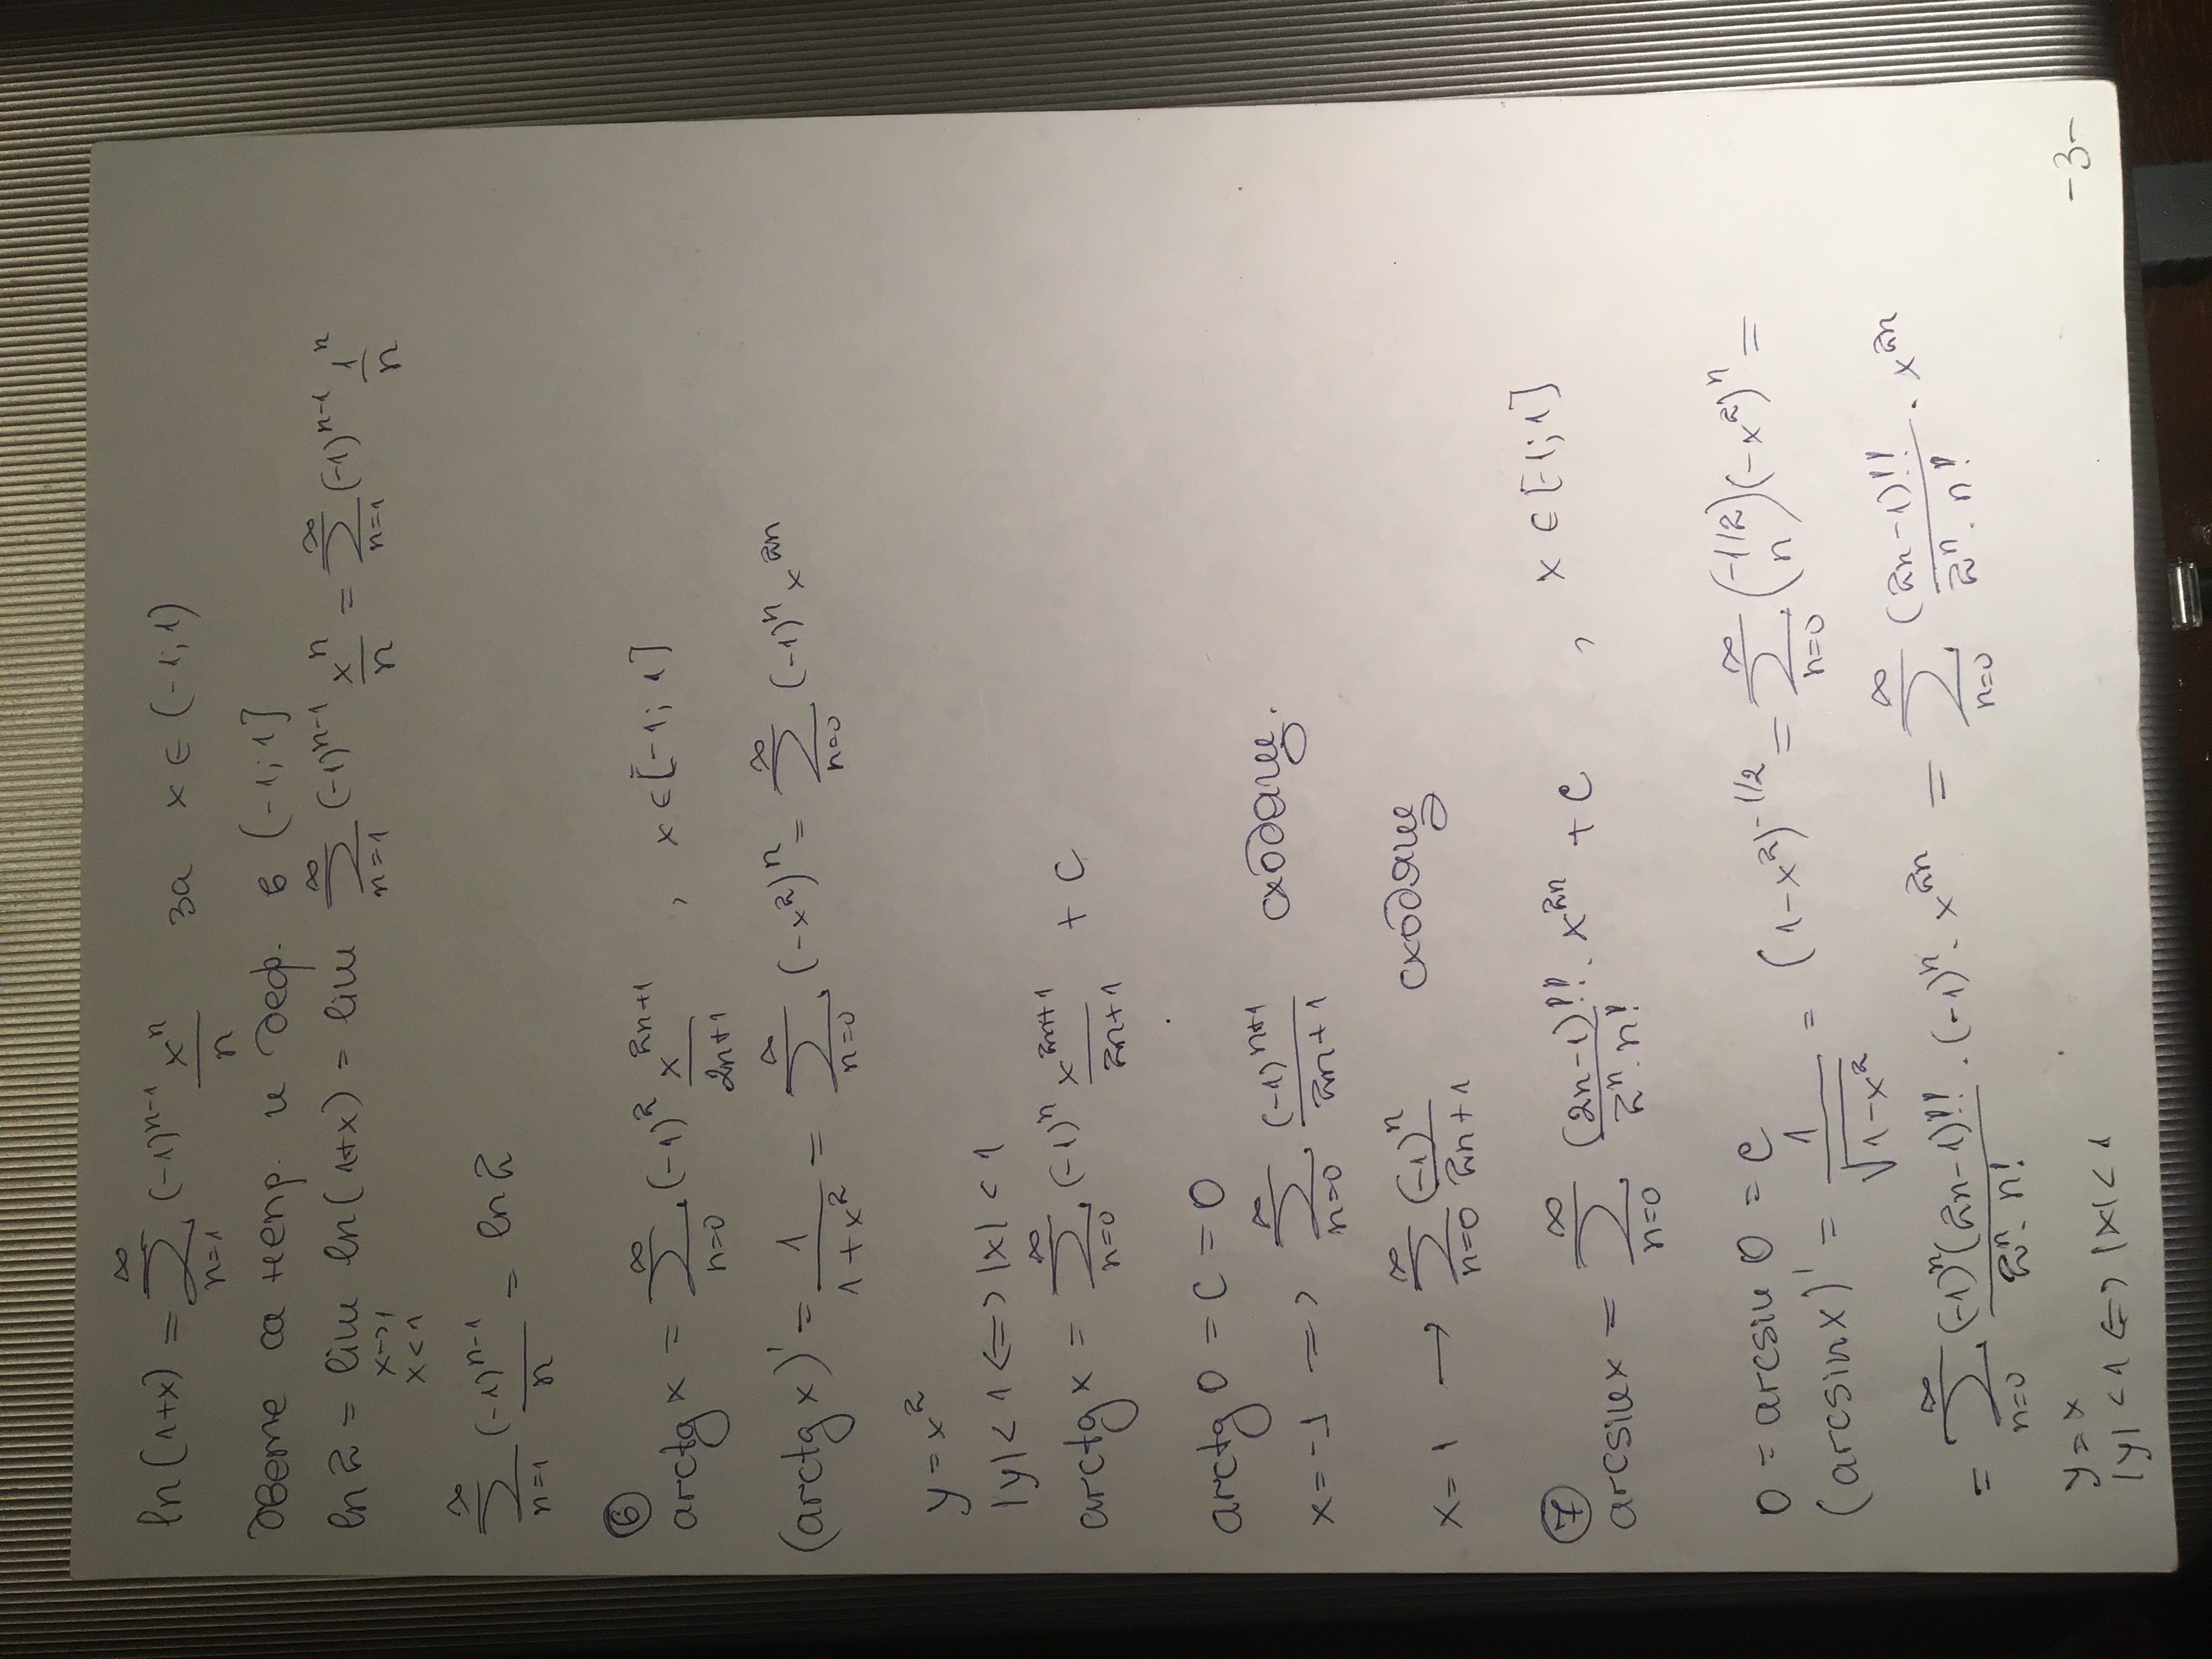 ln(1+x) = ∞∑n=1 (-1)^{n-1} x^n/n за x ∈ (-1; 1)
двете са непр. и деф. в (-1; 1]
ln 2 = lim x→1 x<1 ln(1+x) = lim ∞∑n=1 (-1)^{n-1} x^n/n = ∞∑n=1 (-1)^{n-1} 1^n/n
∞∑n=1 (-1)^{n-1}/n = ln 2
⑥
arctg x = ∞∑n=0 (-1)^2 x^{2n+1}/2n+1 , x ∈ [-1; 1]
(arctg x)' = 1/1+x^2 = ∞∑n=0 (-x^2)^n = ∞∑n=0 (-1)^n x^{2n}
y = x^2
|y| < 1 <=> |x| < 1
arctg x = ∞∑n=0 (-1)^n x^{2n+1}/2n+1 + C
arctg 0 = C = 0
x = -1 => ∞∑n=0 (-1)^{n+1}/2n+1 сходящ.
x = 1 → ∞∑n=0 (-1)^n/2n+1 сходящ
⑦
arcsin x = ∞∑n=0 (2n-1)!!/2^n . n! . x^{2n} + C , x ∈ [-1; 1]
0 = arcsin 0 = C
(arcsin x)' = 1/√1-x^2 = (1-x^2)^{-1/2} = ∞∑n=0 (-1/2 n) (-x^2)^n =
= ∞∑n=0 (-1)^n (2n-1)!!/2^n . n! . (-1)^n . x^{2n} = ∞∑n=0 (2n-1)!!/2^n . n! . x^{2n}
y = x
|y| < 1 <=> |x| < 1
-3-